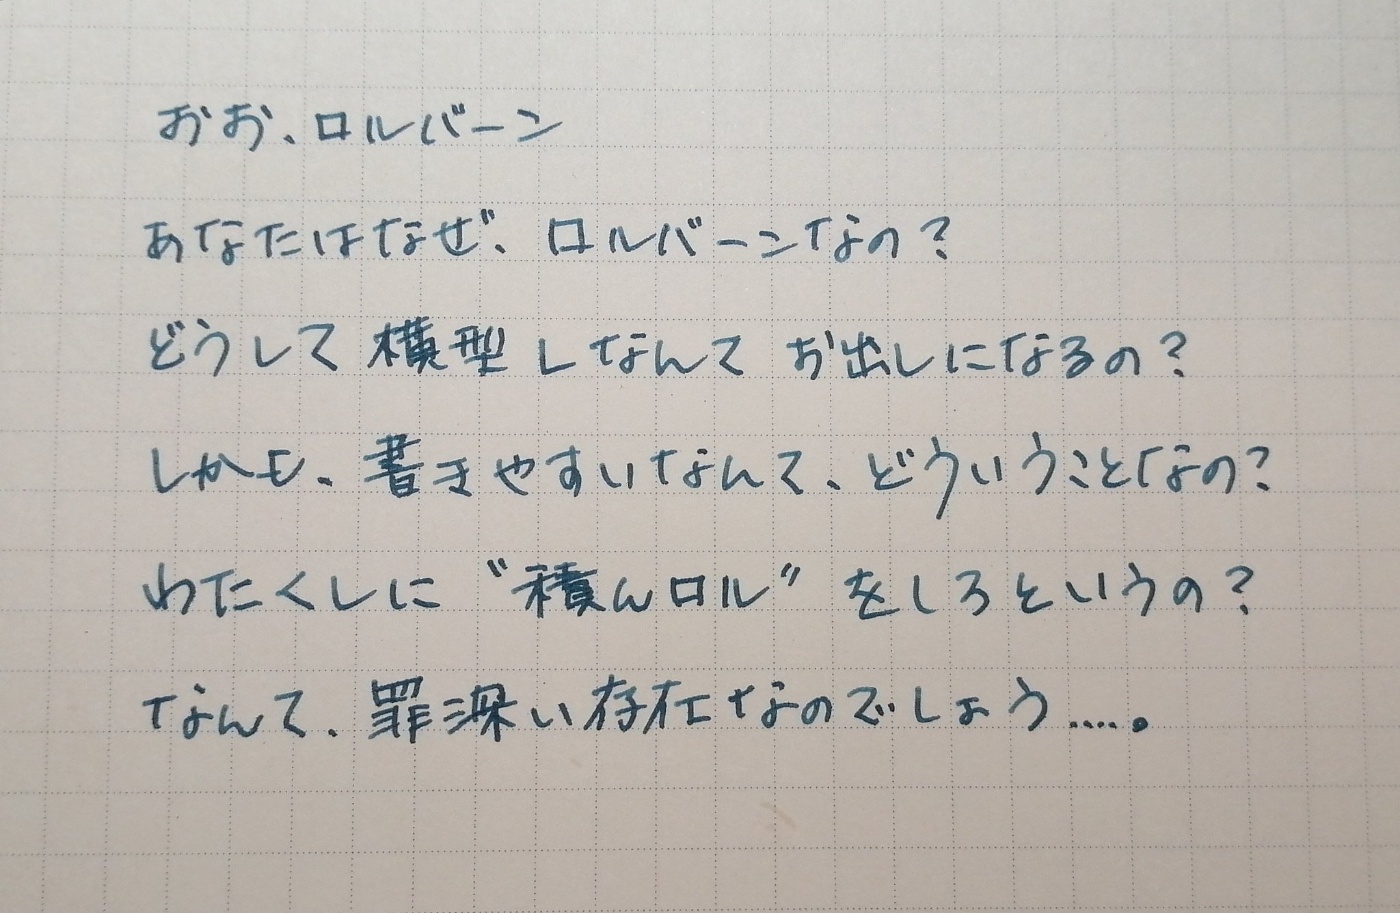 おお、ロルバーン
あなたはなぜ、ロルバーンなの?
どうして横型しなんてお出しになるの?
しかも、書きやすいなんて、どういうことなの?
わたくしに〝積んロル〟をしろというの?
なんて、罪深い存在なのでしょう……。